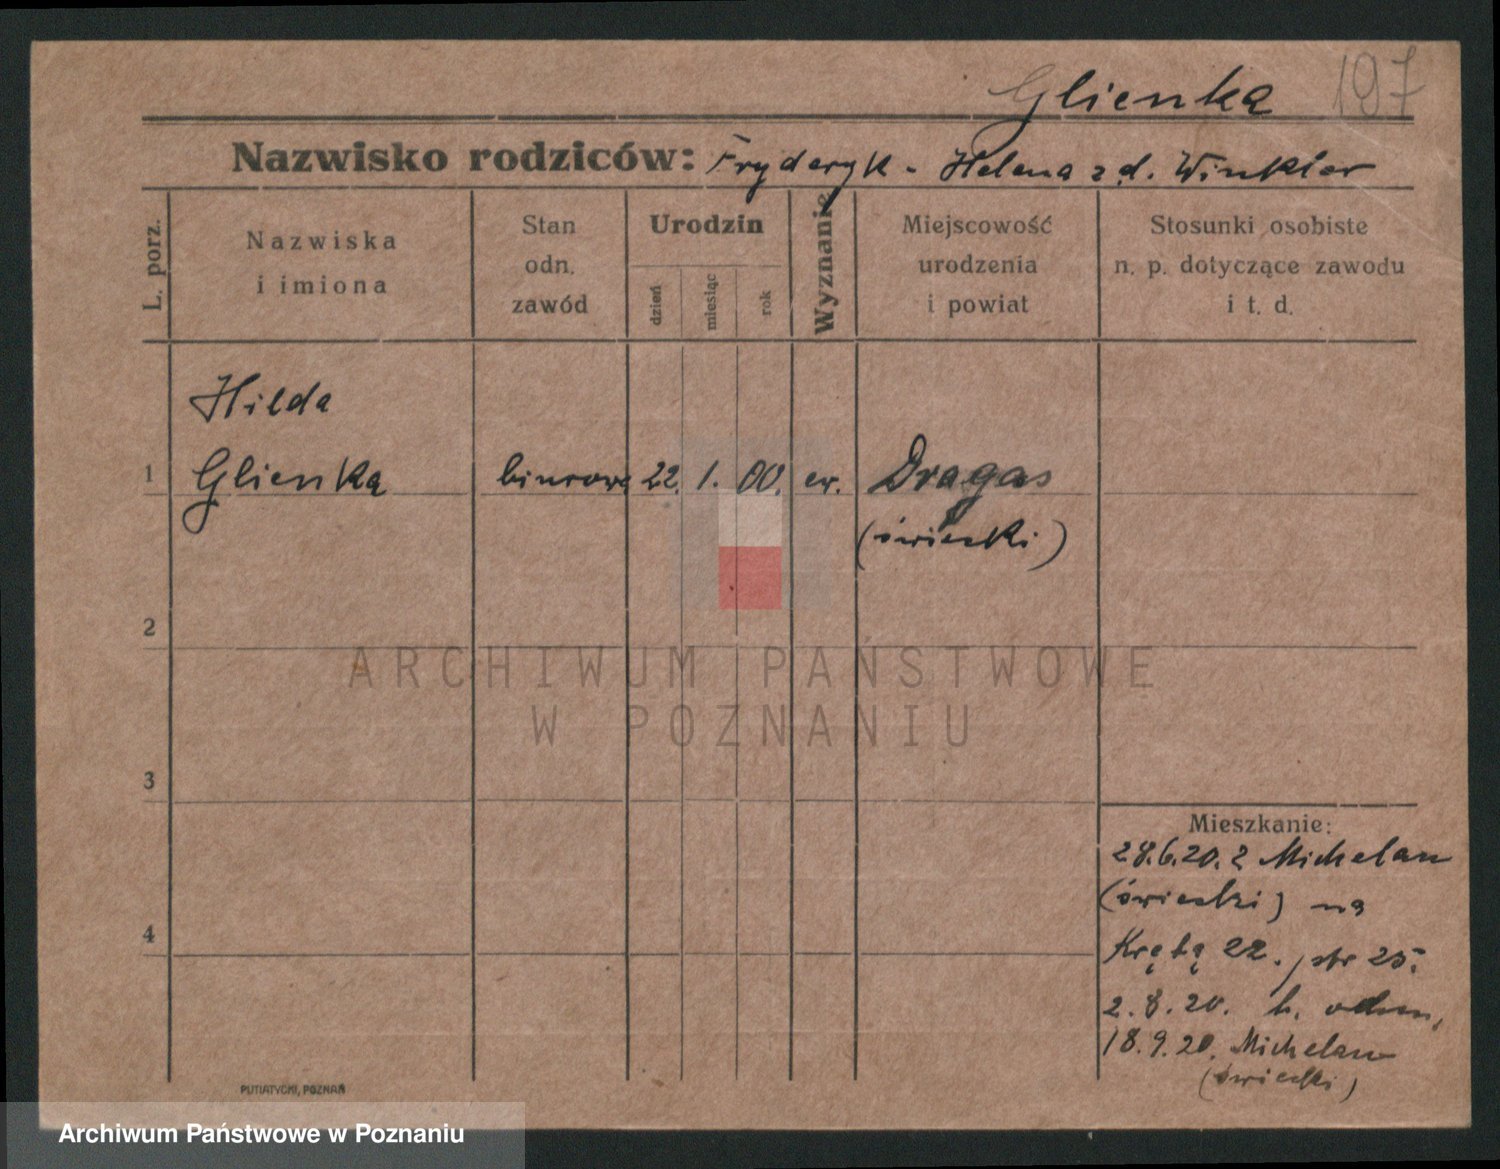 Glienka 197
Nazwisko rodziców: Fryderyk - Helena z d. Winkler
L. porz.
Nazwiska
i imiona
Stan
odn.
zawód
Urodzin
dzień
miesiąc
rok
Wyznanie
Miejscowość
urodzenia
i powiat
Stosunki osobiste
n. p. dotyczące zawodu
i t. d.
Hilda
1 Glienka biurowa 22. 1. 00. ew. Dragas
(świecki)
2
ARCHIWUM PAŃSTWOWE
W POZNANIU
3
Mieszkanie:
28.6.20. z Michelau
(świecki) na
4 Krętą 22. ptr 25.
2.8.20. h.
18.9.20. Michelau
(świecki)
PUTIATYCKI, POZNAŃ
Archiwum Państwowe w Poznaniu